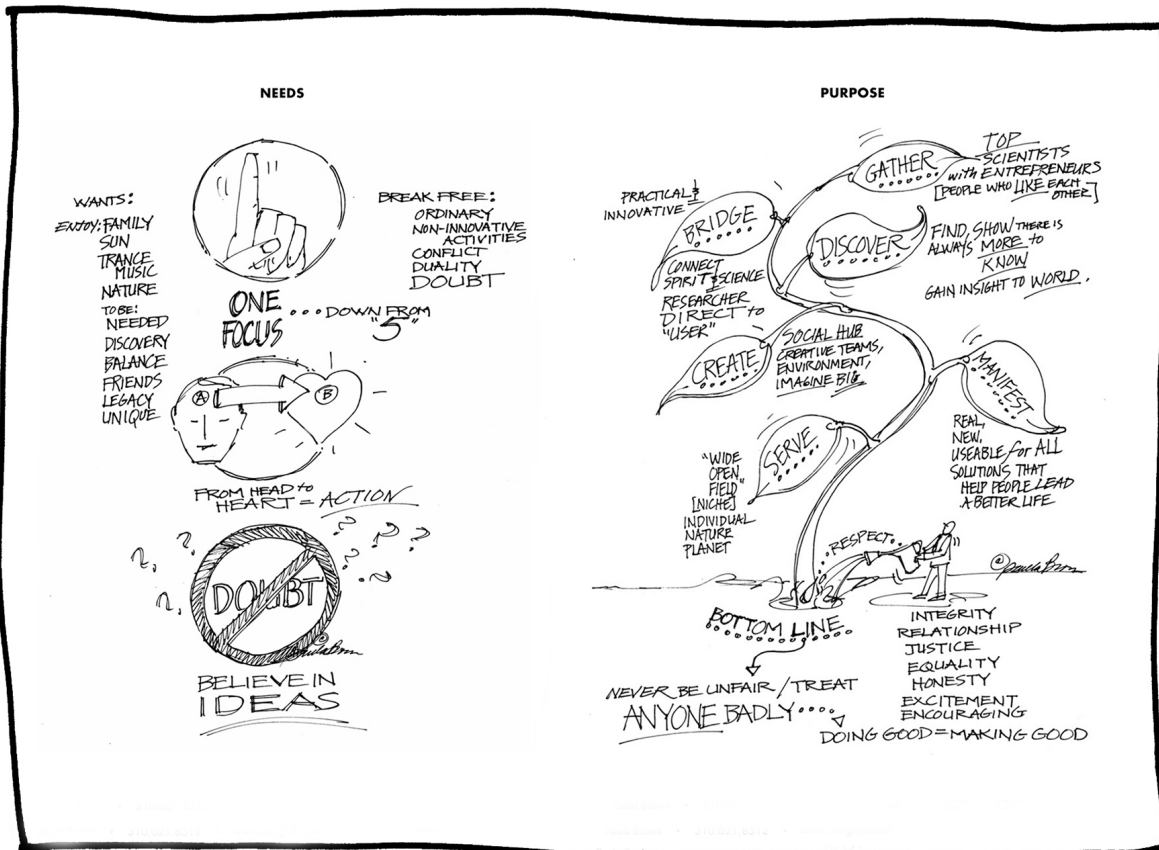 NEEDS
WANTS:
ENJOY: FAMILY
SUN
TRANCE
MUSIC
NATURE
TO BE:
NEEDED
DISCOVERY
BALANCE
FRIENDS
LEGACY
UNIQUE
BREAK FREE:
ORDINARY
NON-INNOVATIVE
ACTIVITIES
CONFLICT
DUALITY
DOUBT
ONE
FOCUS ... DOWN FROM
"5"
A
B
FROM HEAD to
HEART = ACTION
? ? ? ? ? ? ? ? ?
DOUBT
BELIEVE IN
IDEAS
PURPOSE
GATHER
TOP
SCIENTISTS
with ENTREPRENEURS
[PEOPLE WHO LIKE EACH
OTHER]
PRACTICAL &
INNOVATIVE
BRIDGE
CONNECT
SPIRIT & SCIENCE
RESEARCHER
DIRECT to
"USER"
DISCOVER
FIND, SHOW THERE IS
ALWAYS MORE to
KNOW
GAIN INSIGHT TO WORLD.
CREATE
SOCIAL HUB
CREATIVE TEAMS,
ENVIRONMENT,
IMAGINE BIG
MANIFEST
REAL,
NEW,
USEABLE for ALL
SOLUTIONS THAT
HELP PEOPLE LEAD
A BETTER LIFE
SERVE
"WIDE
OPEN
FIELD"
[NICHE]
INDIVIDUAL
NATURE
PLANET
RESPECT
©
BOTTOM LINE
INTEGRITY
RELATIONSHIP
JUSTICE
EQUALITY
HONESTY
EXCITEMENT
ENCOURAGING
NEVER BE UNFAIR / TREAT
ANYONE BADLY....
DOING GOOD = MAKING GOOD